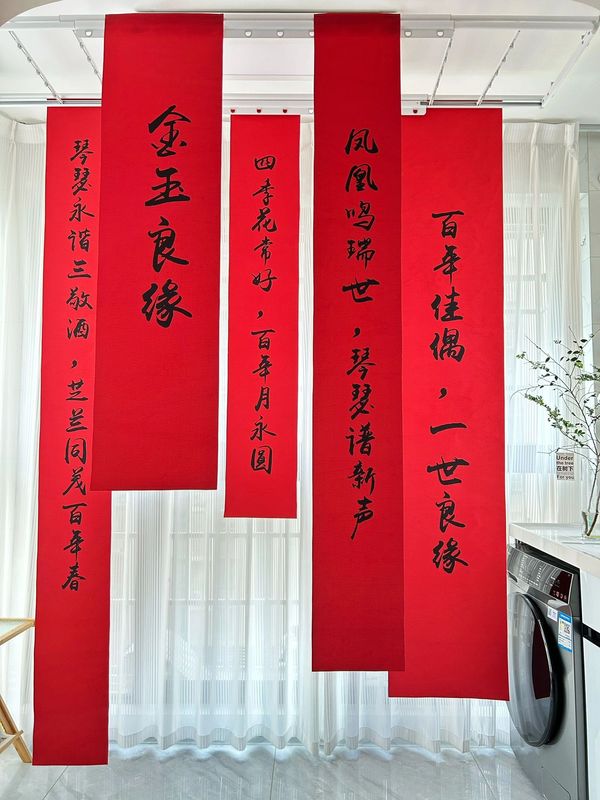 琴瑟永谐三敬酒，芝兰同茂百年春
金玉良缘
四季花常好，百年月永圆
凤凰鸣瑞世，琴瑟谱新声
百年佳偶，一世良缘
Under
the tree
在树下
For you